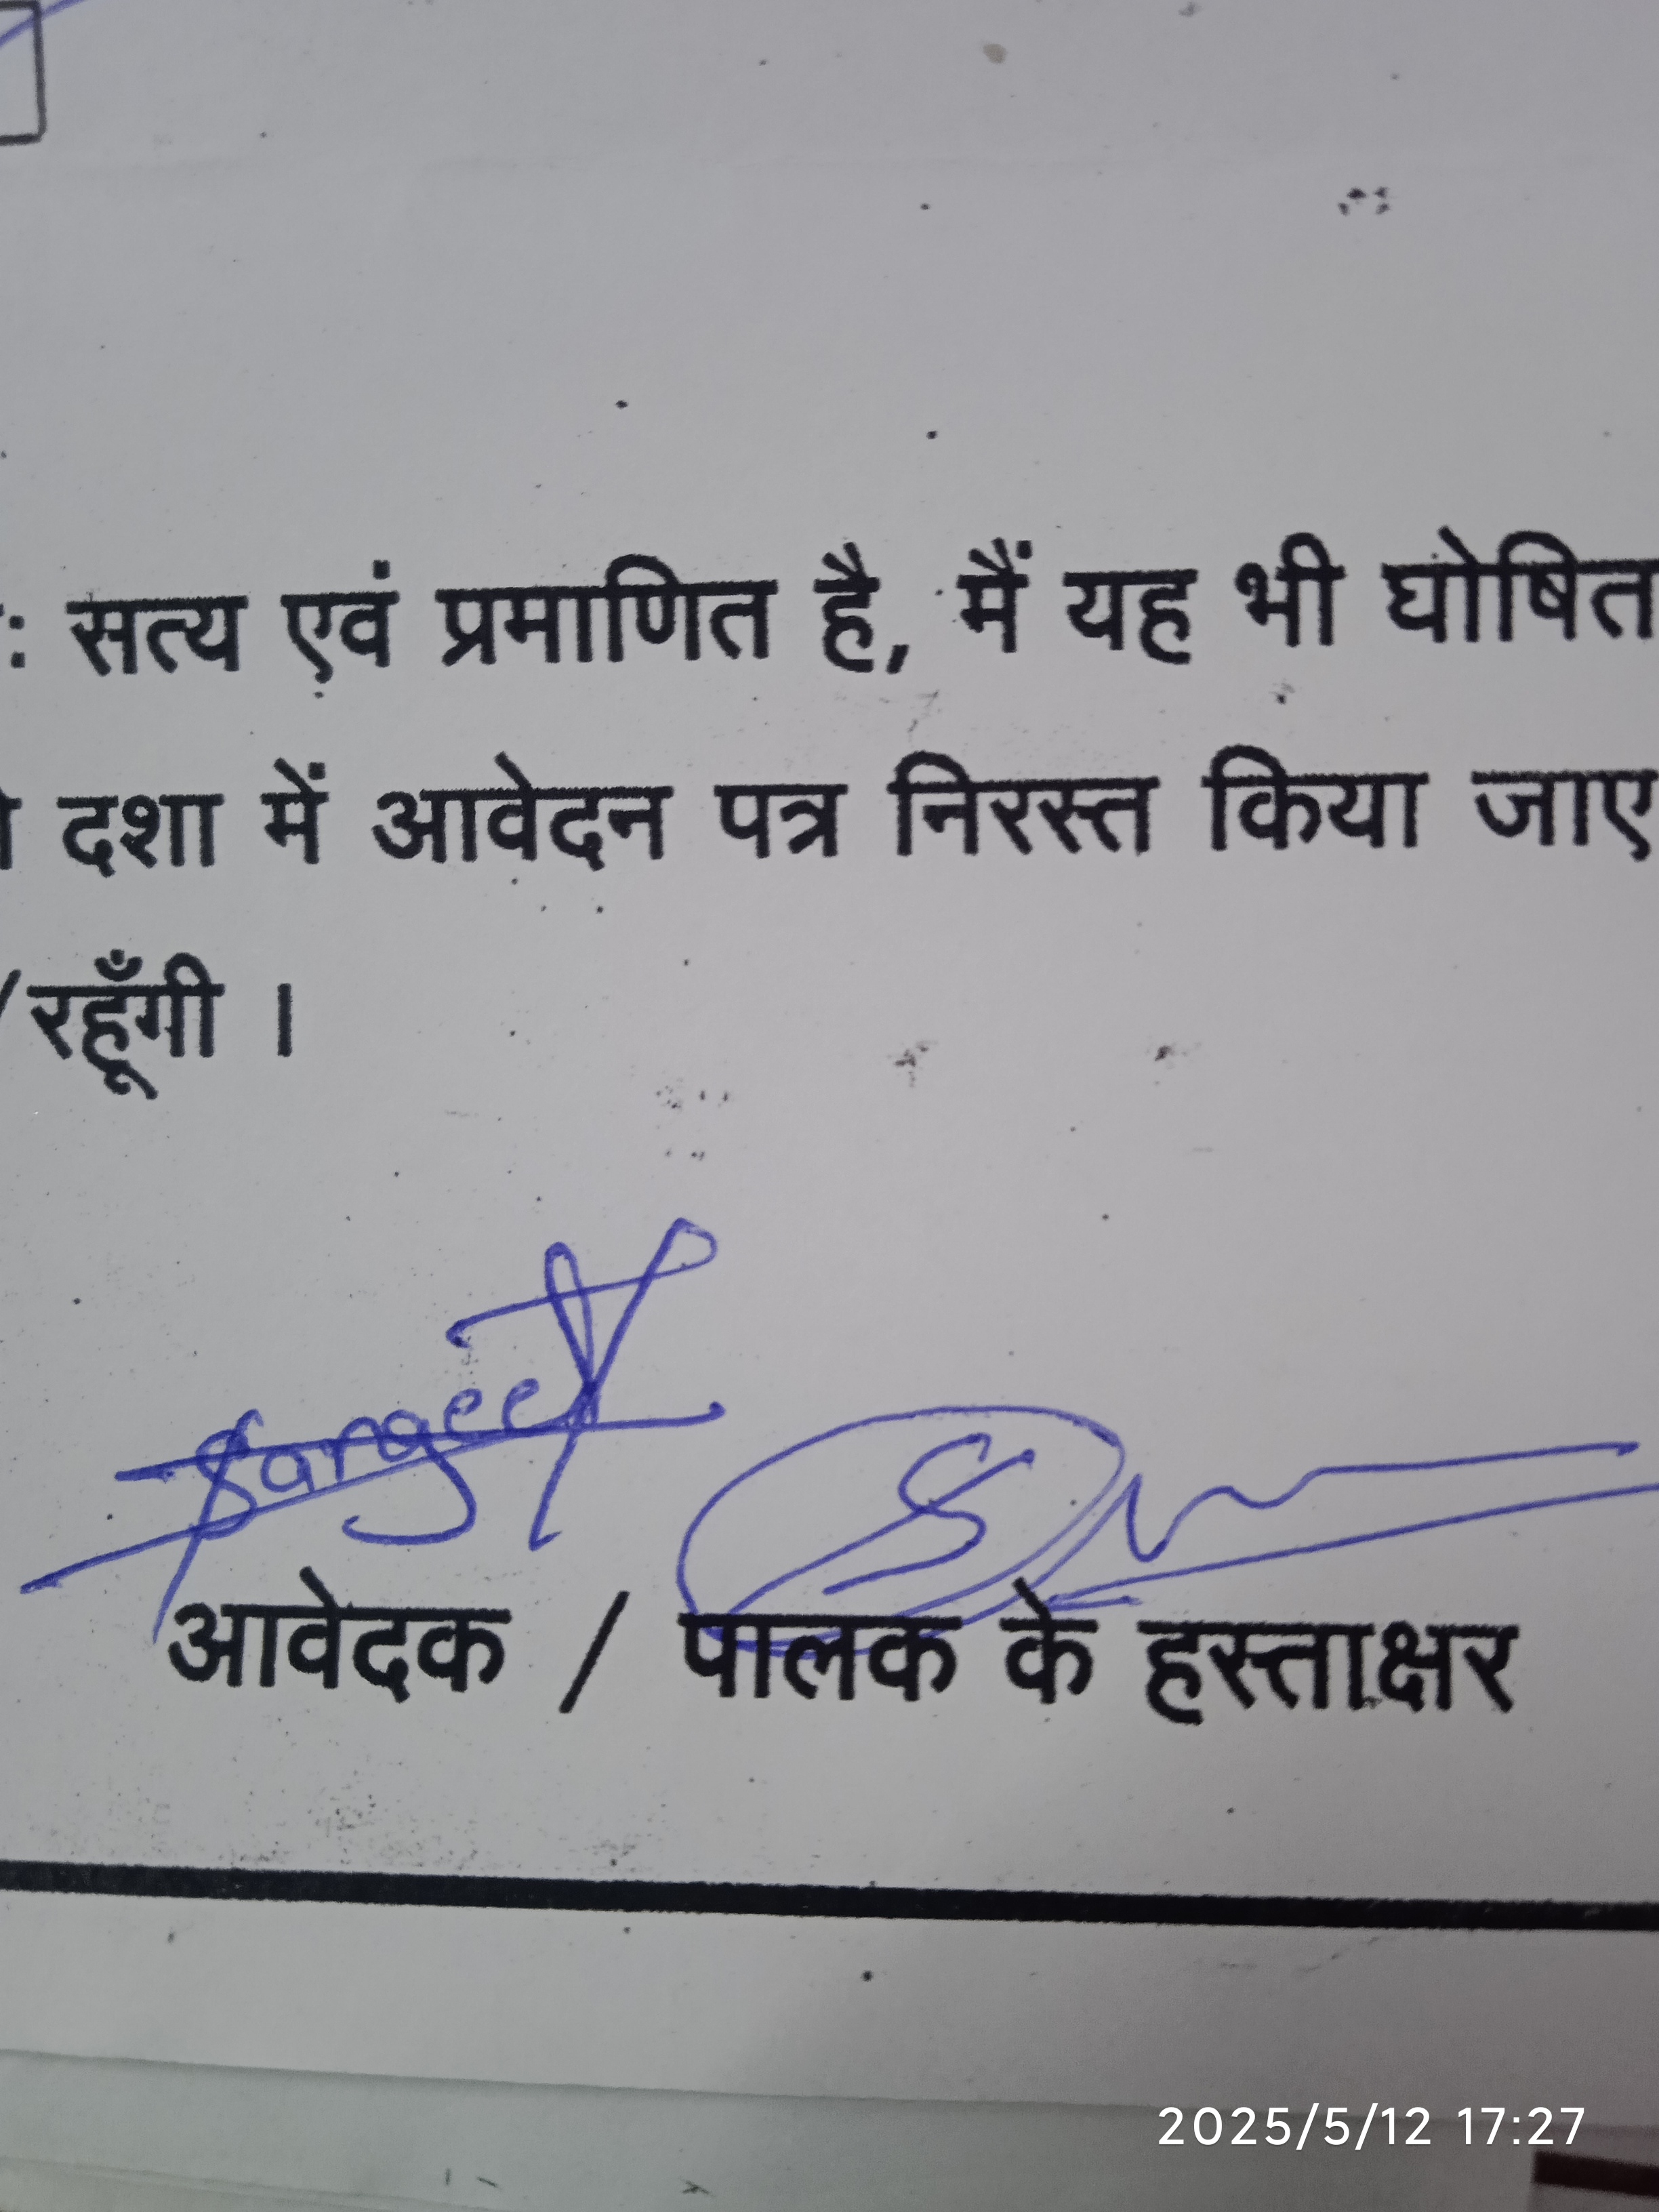 : सत्य एवं प्रमाणित है, मैं यह भी घोषित
दशा में आवेदन पत्र निरस्त किया जाए
/रहूँगी ।
आवेदक / पालक के हस्ताक्षर
2025/5/12 17:27